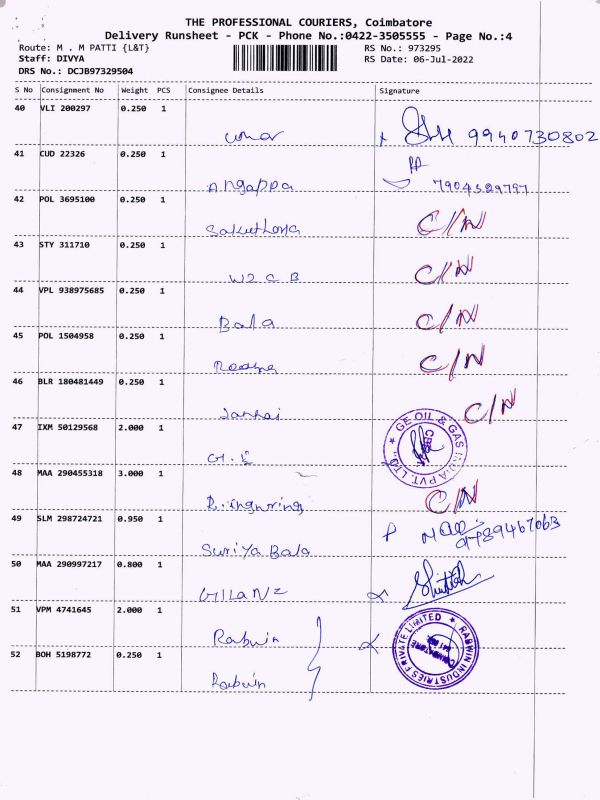 THE PROFESSIONAL COURIERS, Coimbatore
Delivery Runsheet - PCK - Phone No.:0422-3505555 - Page No.:4
Route: M . M PATTI {L&T} RS No.: 973295
Staff: DIVYA RS Date: 06-Jul-2022
DRS No.: DCJB97329504
S No Consignment No Weight PCS Consignee Details Signature
40 VLI 200297 0.250 1
9940730802
41 CUD 22326 0.250 1
Angappa 7904529797
42 POL 3695100 0.250 1
C/N
43 STY 311710 0.250 1
C/N
44 VPL 938975685 0.250 1
Bala C/N
45 POL 1504958 0.250 1
C/N
46 BLR 180481449 0.250 1
Jankai C/N
47 IXM 50129568 2.000 1
G.E GE OIL & GAS INDIA PVT. LTD
48 MAA 290455318 3.000 1
C/N
49 SLM 298724721 0.950 1
Suriya Bala 9789467063
50 MAA 290997217 0.800 1
51 VPM 4741645 2.000 1
Rabwin RABWIN INDUSTRIES PRIVATE LIMITED
COIMBATORE
52 BOH 5198772 0.250 1
Rabwin